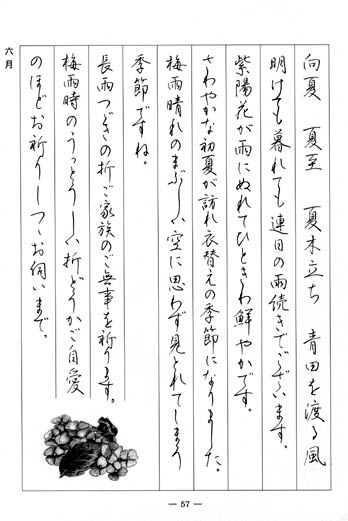 六月
向夏　夏至　夏木立ち　青田を渡る風
明けても暮れても連日の雨続きでございます。
紫陽花が雨にぬれてひときわ鮮やかです。
さわやかな初夏が訪れ衣替えの季節になりました。
梅雨晴れのまぶしい空に思わず見とれてしまう
季節ですね。
長雨つづきの折ご家族のご無事を祈ります。
梅雨時のうっとうしい折どうかご自愛
のほどお祈りしつつお伺いまで。
— 57 —